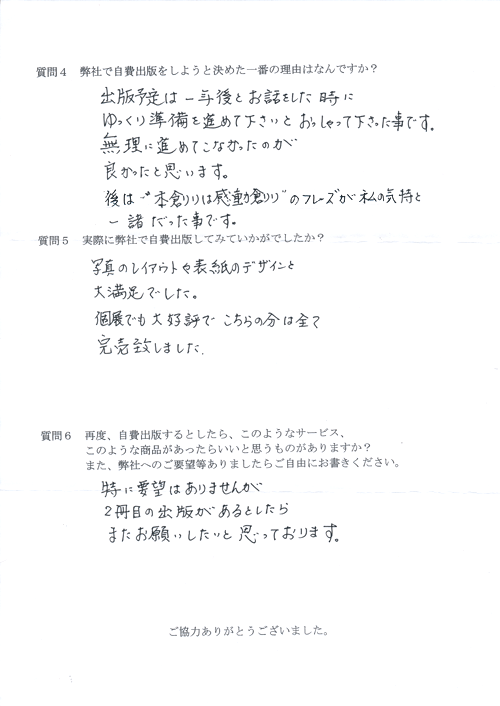 質問４　弊社で自費出版をしようと決めた一番の理由はなんですか？
出版予定は一年後とお話をした時に
ゆっくり準備を進めて下さいとおっしゃって下さった事です。
無理に進めてこなかったのが
良かったと思います。
後は“本創りは感動創り”のフレーズが私の気持と
一諸だった事です。
質問５　実際に弊社で自費出版してみていかがでしたか？
写真のレイアウトや表紙のデザインと
大満足でした。
個展でも大好評でこちらの分は全て
完売致しました.
質問６　再度、自費出版するとしたら、このようなサービス、
このような商品があったらいいと思うものがありますか？
また、弊社へのご要望等ありましたらご自由にお書きください。
特に要望はありませんが
2冊目の出版があるとしたら
またお願いしたいと思っております。
ご協力ありがとうございました。